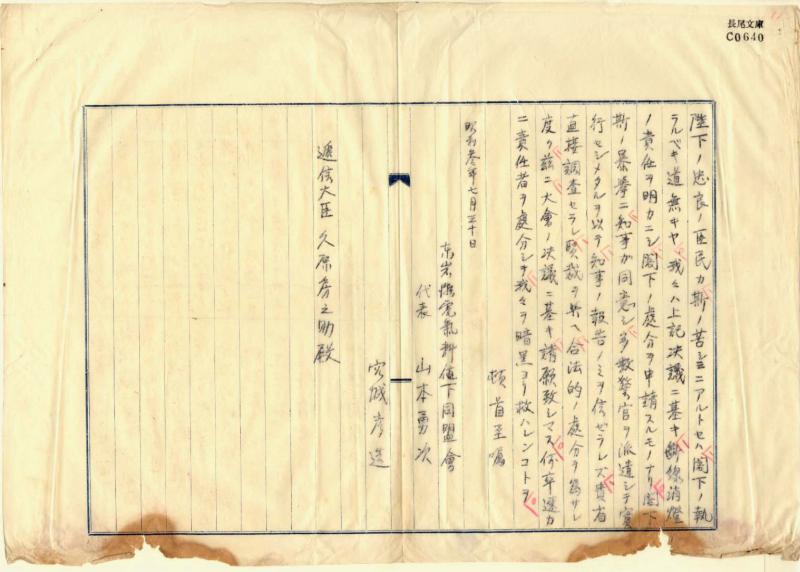 長尾文庫
C0640
陛下ノ忠良ノ臣民カ斯ノ苦シミニアルトセハ閣下ノ執
ラルベキ道無キヤ我々ハ上記决議ニ基キ断線消燈
ノ責任ヲ明カニシ閣下ノ處分ヲ申請スルモノナリ閣下
斯ノ暴挙ニ知事ガ同意シ多数警官ヲ派遣シテ實
行セシメタルヲ以テ知事ノ報告ノミヲ信ゼラレズ貴省
直接調査セラレ賢裁ヲ与ヘ合法的ノ處分ヲ為サレ
度ク茲ニ大會ノ决議ニ基キ請願致シマス何卒速カ
ニ責任者ヲ處分シテ我々ヲ暗黒ヨリ救ハレンコトヲ
頓首至嘱
昭和参年七月三十日
東岩瀬電氣料値下同盟會
代表 山本勇次
宮城彦造
遞信大臣 久原房之助殿